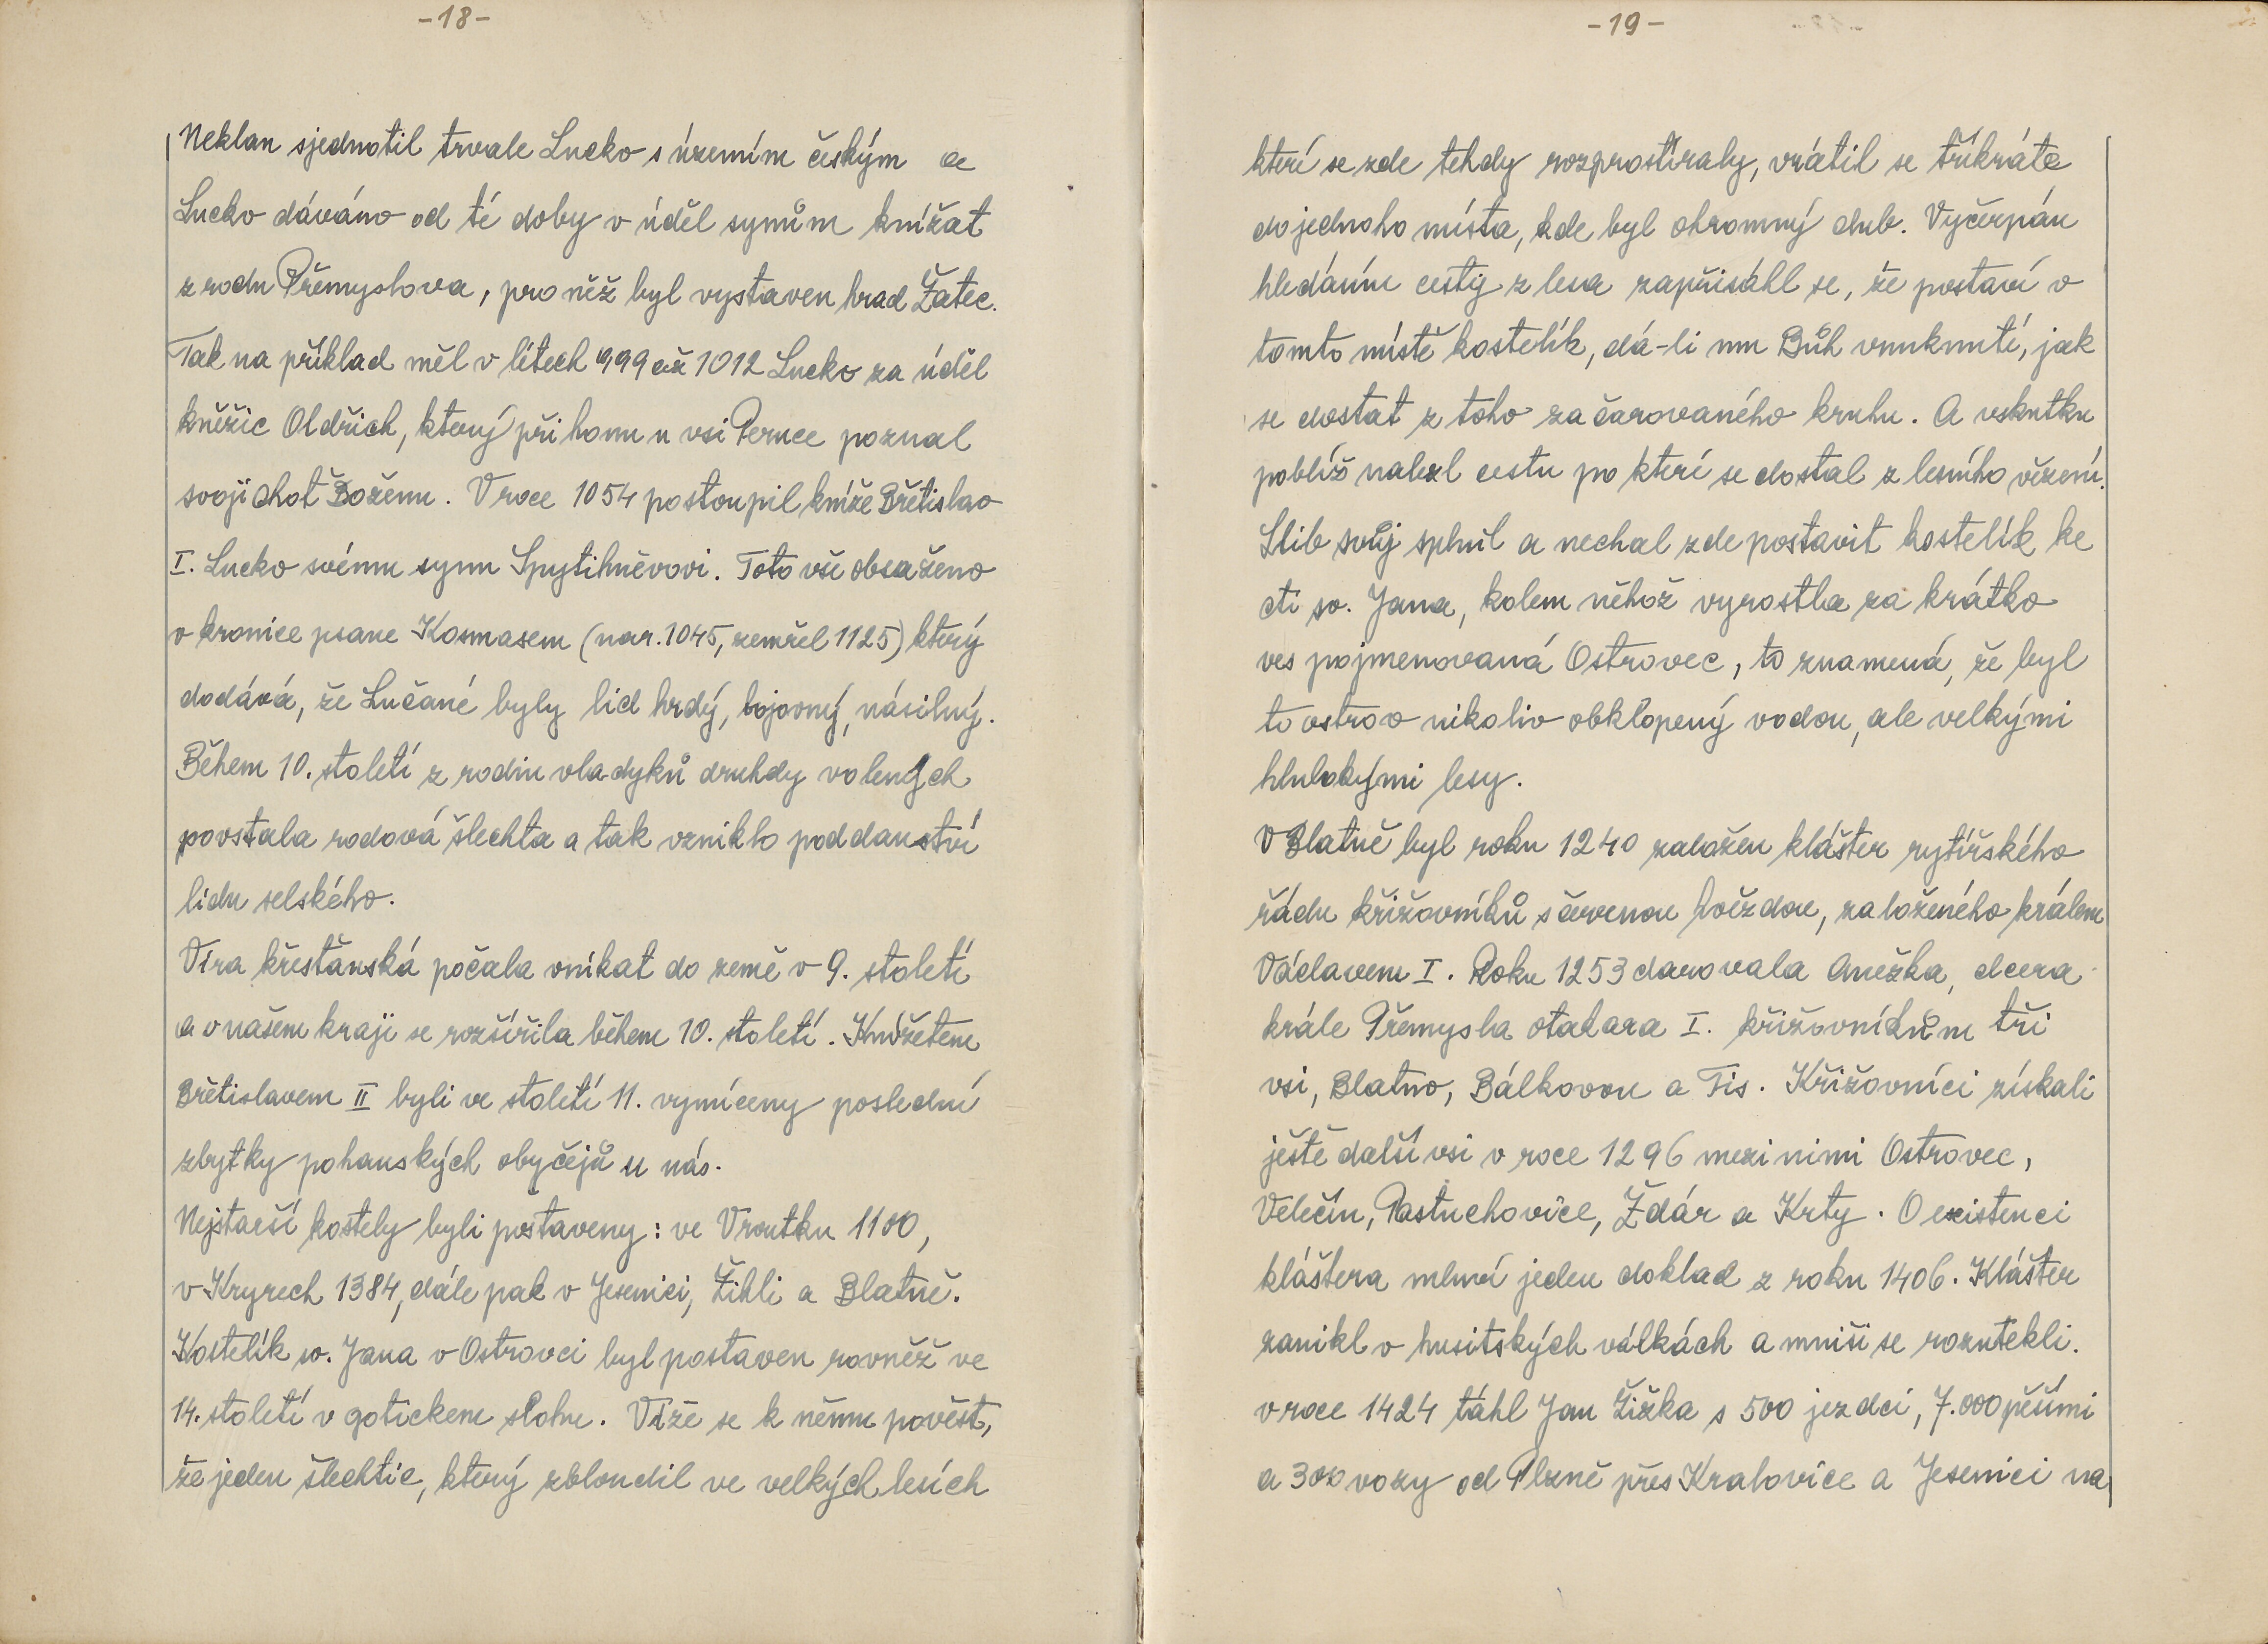 -18-
Neklan sjednotil trvale Lucko s územím českým a
Lucko dáváno od té doby v úděl synům knížat
z rodu Přemyslova, pro něž byl vystaven hrad Žatec.
Tak na příklad měl v létech 999 až 1012 Lucko za úděl
kněžic Oldřich, který při honu u vsi Peruce poznal
svoji choť Boženu. V roce 1054 postoupil kníže Břetislav
I. Lucko svému synu Spytihněvovi. Toto vše obsaženo
v kronice psane Kosmasem (nar. 1045, zemřel 1125) který
dodává, že Lučané byly lid hrdý, bojovný, násilný.
Během 10. století z rodin vladyků druhdy volených
povstala rodová šlechta a tak vzniklo poddanství
lidu selského.
Víra křesťanská počala vnikat do země v 9. století
a v našem kraji se rozšířila během 10. století. Knížetem
Břetislavem II byli ve století 11. vymíceny poslední
zbytky pohanských obyčejů u nás.
Nejstarší kostely byli postaveny: ve Vroutku 1100,
v Kryrech 1384, dále pak v Jesenici, Žihli a Blatně.
Kostelík sv. Jana v Ostrovci byl postaven rovněž ve
14. století v gotickem slohu. Víže se k němu pověst,
že jeden šlechtic, který zbloudil ve velkých lesích
-19-
kterí se zde tehdy rozprostíraly, vrátil se tříkráte
do jednoho místa, kde byl ohromný dub. Vyčerpán
hledáním cesty z lesa zapřisáhl se, že postaví v
tomto místě kostelík, dá-li mu Bůh vnuknutí, jak
se dostat z toho začarovaného kruhu. A vskutku
poblíž nalezl cestu po kterí se dostal z lesního vězení.
Slib svůj splnil a nechal zde postavit kostelík ke
cti sv. Jana, kolem něhož vyrostla za krátko
ves pojmenovaná Ostrovec, to znamená, že byl
to ostrov nikoliv obklopený vodou, ale velkými
hlubokými lesy.
V Blatně byl roku 1240 založen klášter rytířského
řádu křižovníků s červenou hvězdou, založeného králem
Václavem I. Roku 1253 darovala Anežka, dcera
krále Přemysla otakara I. křižovníkům tři
vsi, Blatno, Bálkovou a Tis. Křižovníci získali
ještě další vsi v roce 1296 mezi nimi Ostrovec,
Velečín, Pastuchovice, Ždár a Krty. O existenci
kláštera mluví jeden doklad z roku 1406. Klášter
zanikl v husitských válkách a mniši se rozutekli.
v roce 1424 táhl Jan Žižka s 500 jezdci, 7.000 pěšími
a 300 vozy od Plzně přes Kralovice a Jesenici na